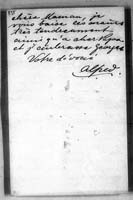 chère Maman, je
vous baise les mains
très tendrement
ainsi qu'à
et j'embrasse Georges
Votre dévoué
Alfred.